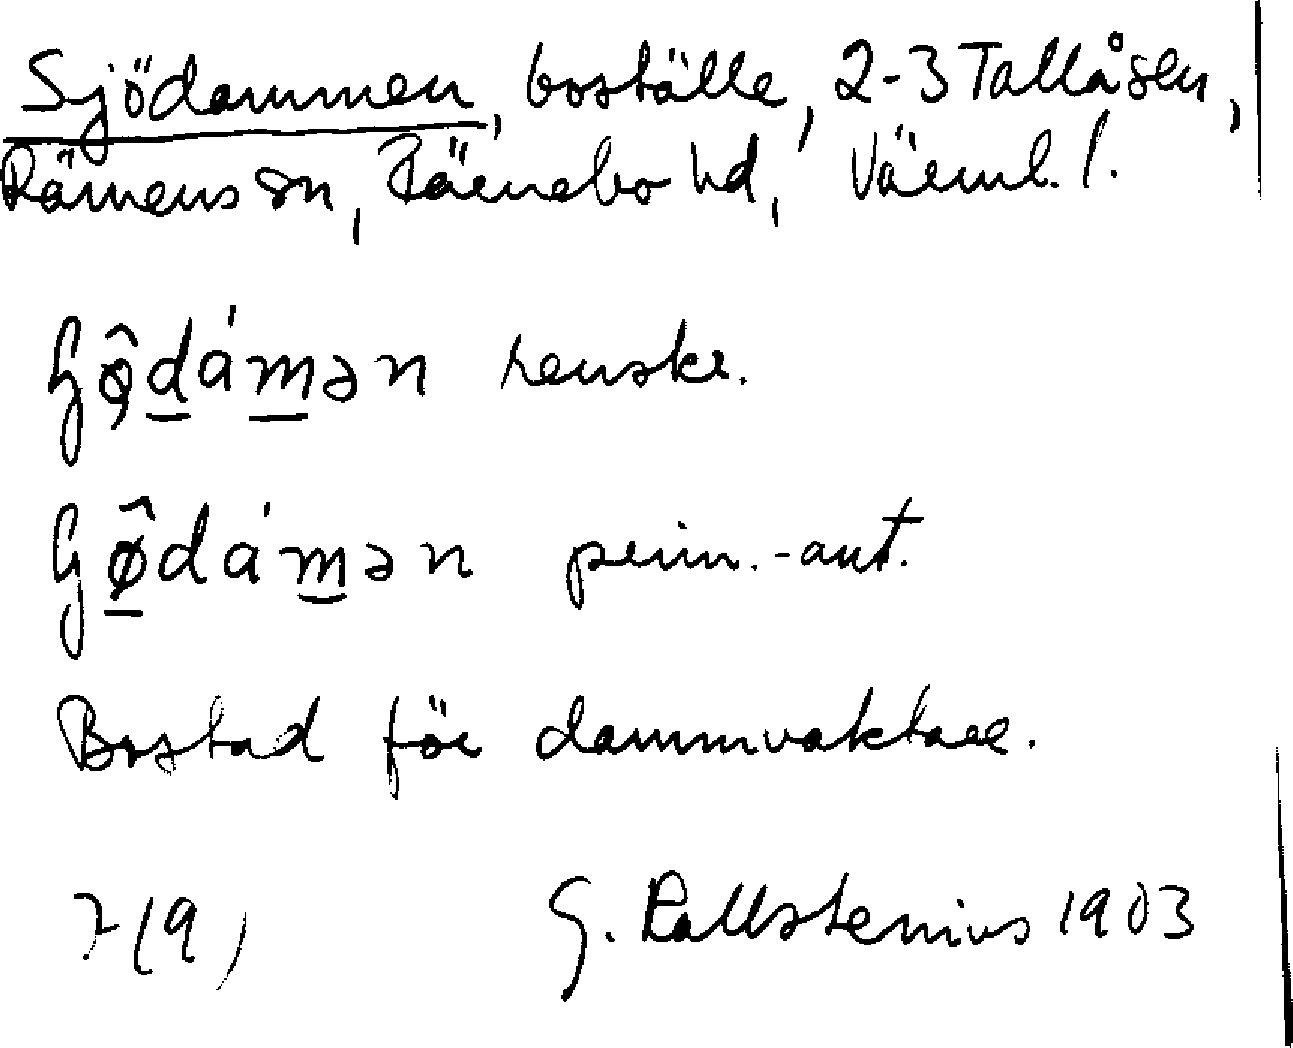 Sjödammen, boställe, 2-3 Tallåsen,
Rämens sn, Färnebo hd, Värml. l.
renskr.
prim.-ant.
Bostad för dammvaktare.
7(9)
G. Kallstenius 1903